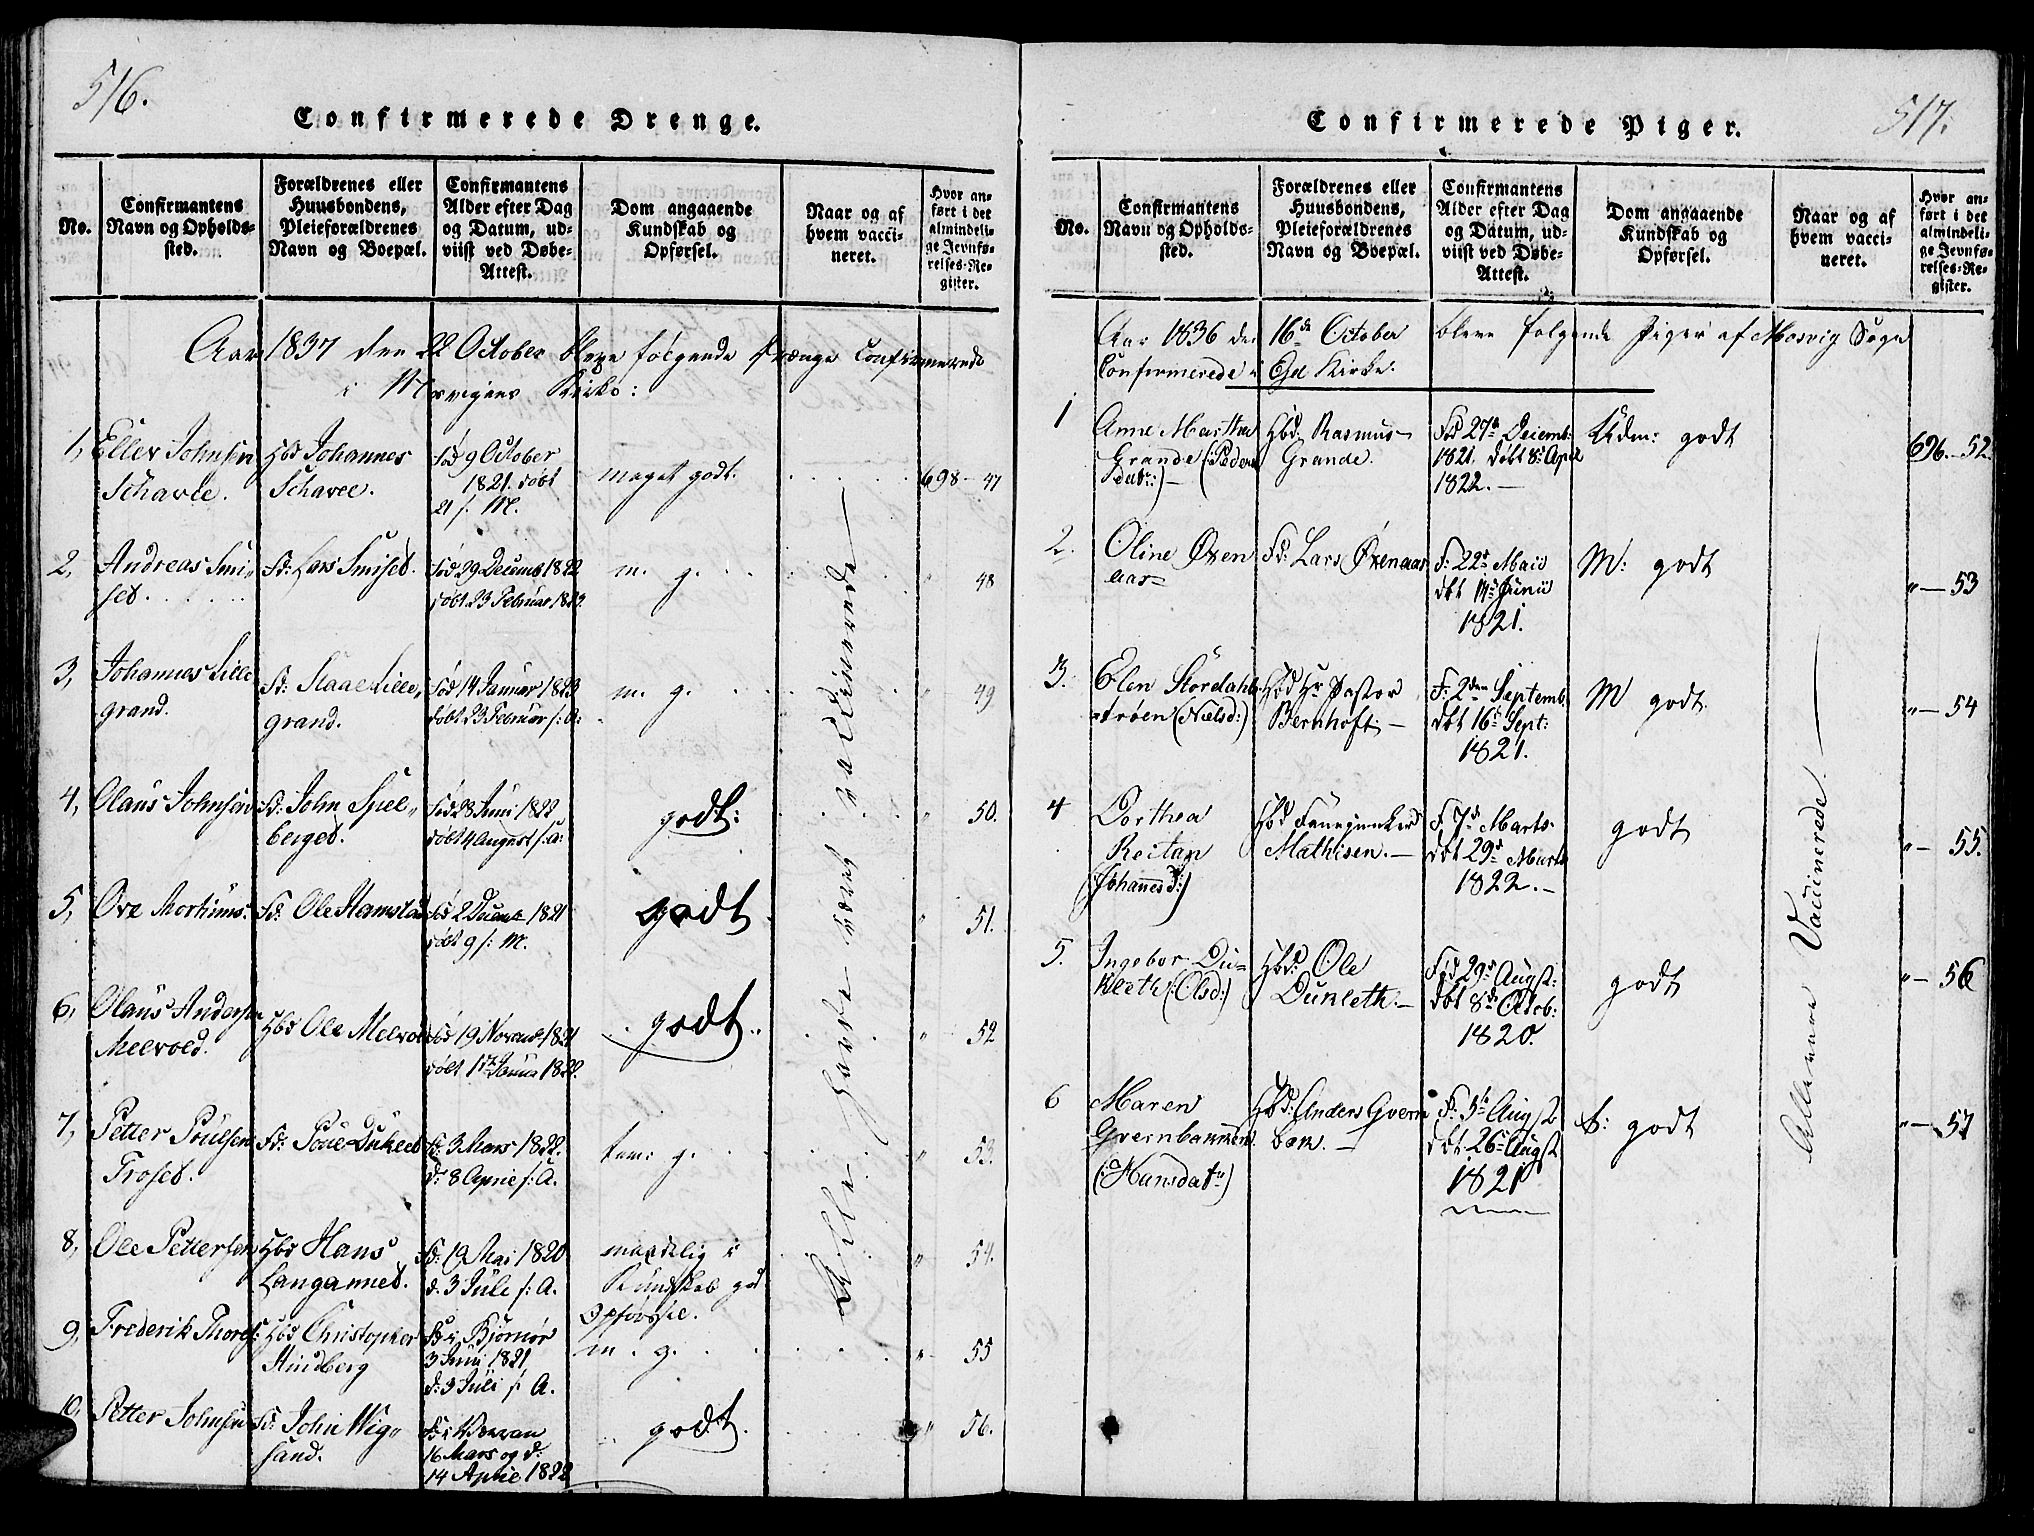 516.
Confirmerede Drenge.
No.
Confirmantens
Navn og Opholds-
sted.
Forældrenes eller
Huusbondens,
Pleieforældrenes
Navn og Boepæl.
Confirmantens
Alder efter Dag
og Datum, ud-
viist ved Døbe-
Attest.
Dom angaaende
Kundskab og
Opførsel.
Naar og af
hvem vacci-
neret.
Hvor an-
ført i det
almindeli-
ge Jevnfø-
relses-Re-
gister.
Aar 1837 den 22 October bleve følgende Drænge Confirmerede
i Mosvigens Kirke:
1, Eller Johnsen Schavle. Hbd Johannes Schavle. Fød 9 October 1821. døbt 21 s: M. meget godt. 698 - 47
2, Andreas Smiset. Fd: Lars Smiset. Fød 29 Decemb 1822 døbt 23 Februar 1823. m. g. " 48
3, Johannes Lille grand. Fd: Staale Lille, grand. Fød 14 Januar 1823 døbt 23 Februar s: A: m. g. " 49
4, Olaus Johnsen Fd: John Spel, berget. Fød 28 Juni 1822 døbt 4 August s: A: godt: " 50.
5, Ove Morthins: Fd: Ole Hamstad Fød 2 Decemb 1821 døbt 9 s: M. godt " 51.
6, Olaus Andersen Melvold. Hbd Ole Melvold Fød 19 Novemb 1821 døbt 1 Janua 1822. godt. " 52
7, Petter Poulsen Troset. Fd: Poul Dukleet F: 3 Mars 1822. d: 8 April s: A. tem: g. " 53.
8, Ole Pettersen Hbd Hans Langannet. Fd: 19 Mai 1820 d. 3 Juli s: A. maadelig i Kundskab god Opførsel. " 54.
9, Frederik Thores: Hbd Christopher Hindberg Fd: i Bjørnør 3 Juni 1821 d: 3 Juli s: A. m. g. " 55
10, Petter Johnsen Fd: John Wig, sand. Fd: i Værran 16 Mars og d: 14 April 1822 godt. " 56.
Alle have været vaccinerede
517.
Confirmerede Piger.
No.
Confirmantens
Navn og Opholds-
sted.
Forældrenes eller
Huusbondens,
Pleieforældrenes
Navn og Boepæl.
Confirmantens
Alder efter Dag
og Datum, ud-
viist ved Døbe-
Attest.
Dom angaaende
Kundskab og
Opførsel.
Naar og af
hvem vacci-
neret.
Hvor an-
ført i det
almindeli-
ge Jevnfø-
relses-Re-
gister.
Aar 1836 den 16de October bleve følgende Piger af Mosvig Sogn
Confirmerede i Kirke:
1 Anne Martha Grande (:Peders datr:) - Hbd: Rasmus Grande. Fød 27de Decemb: 1821. døbt 8de April 1822. - Udm: godt 696. - 52.
2. Oline Øxen aar - Fd: Lars Øxenaar F: 22de Maii dbt Junii 1821. M: godt " - 53
3. Elen Stordahls trøen (Nielsd:) Hbd Hr Pastor Bernhoft: - F: 2den Septemb. dbt 16de Sept: 1821. M godt " - 54
4 Dorthea Reitan (Johannesd:) Hbd Fanejunker Mathisen. - F. 7de Marts dbt 29de Marts 1822. - godt " - 55.
5. Ingebor Du= kleth (:Olsd:) Hbd: Ole Dukleth - Fød 29de Augst: dbt 8de Octob: 1820. godt " - 56
6 Maren Gvernbakken (:Hansdatr:) Hbd: Anders Gvern bak. - F: 5te Augst dbt. 26de Augst 1821 t: godt " - 57
Alle ere Vaccinerede.